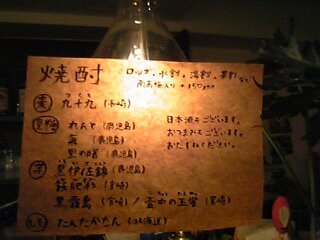 焼酎
ロック、水割、湯割、茶割
南高梅入り +150yen
つくも
麦 九十九 (大崎)
黒糖 れんと (鹿児島)
日本酒もございます。
氣 (鹿児島)
おつまみもございます。
里の曙 (鹿児島)
おたずねください。
芋 黒伊佐錦 (鹿児島)
飫肥杉 (宮崎)
黒霧島 (宮崎) / 壷中の玉蜜 (宮崎)
しそ たんたかたん (北海道)